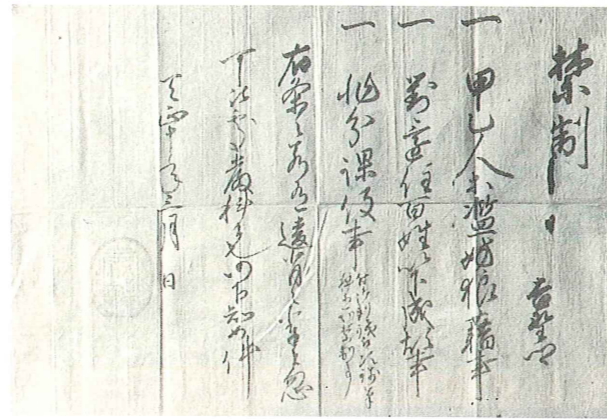 禁制
一 甲乙人等濫妨狼藉事
一 對還住百姓以下成煩事
一 非分課役事
右条々若有違背之輩者忽
可被處嚴科者也仍下知如件
天正十年三月 日